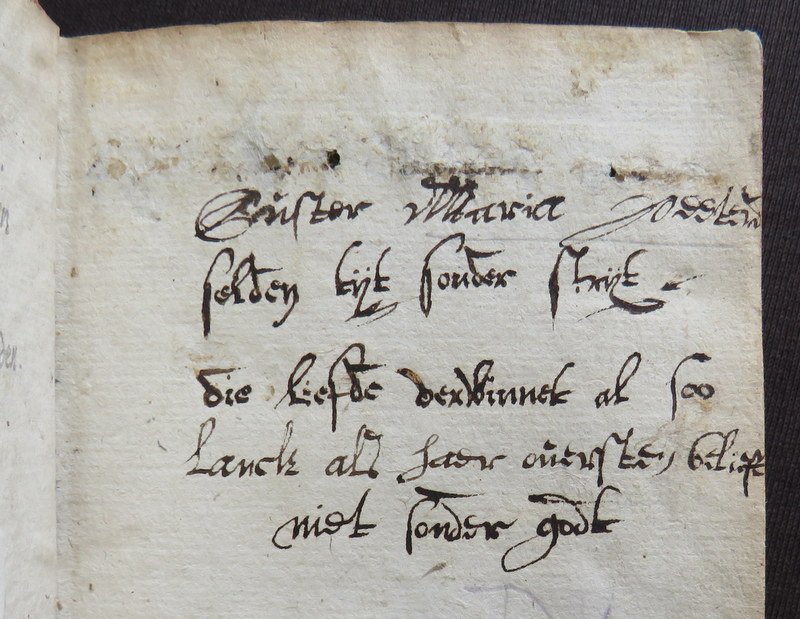 Suster Maria Peeters
selden tijt sonder strijt
die liefde verwinnet al soo
lanck als haer oversten belieft
niet sonder godt